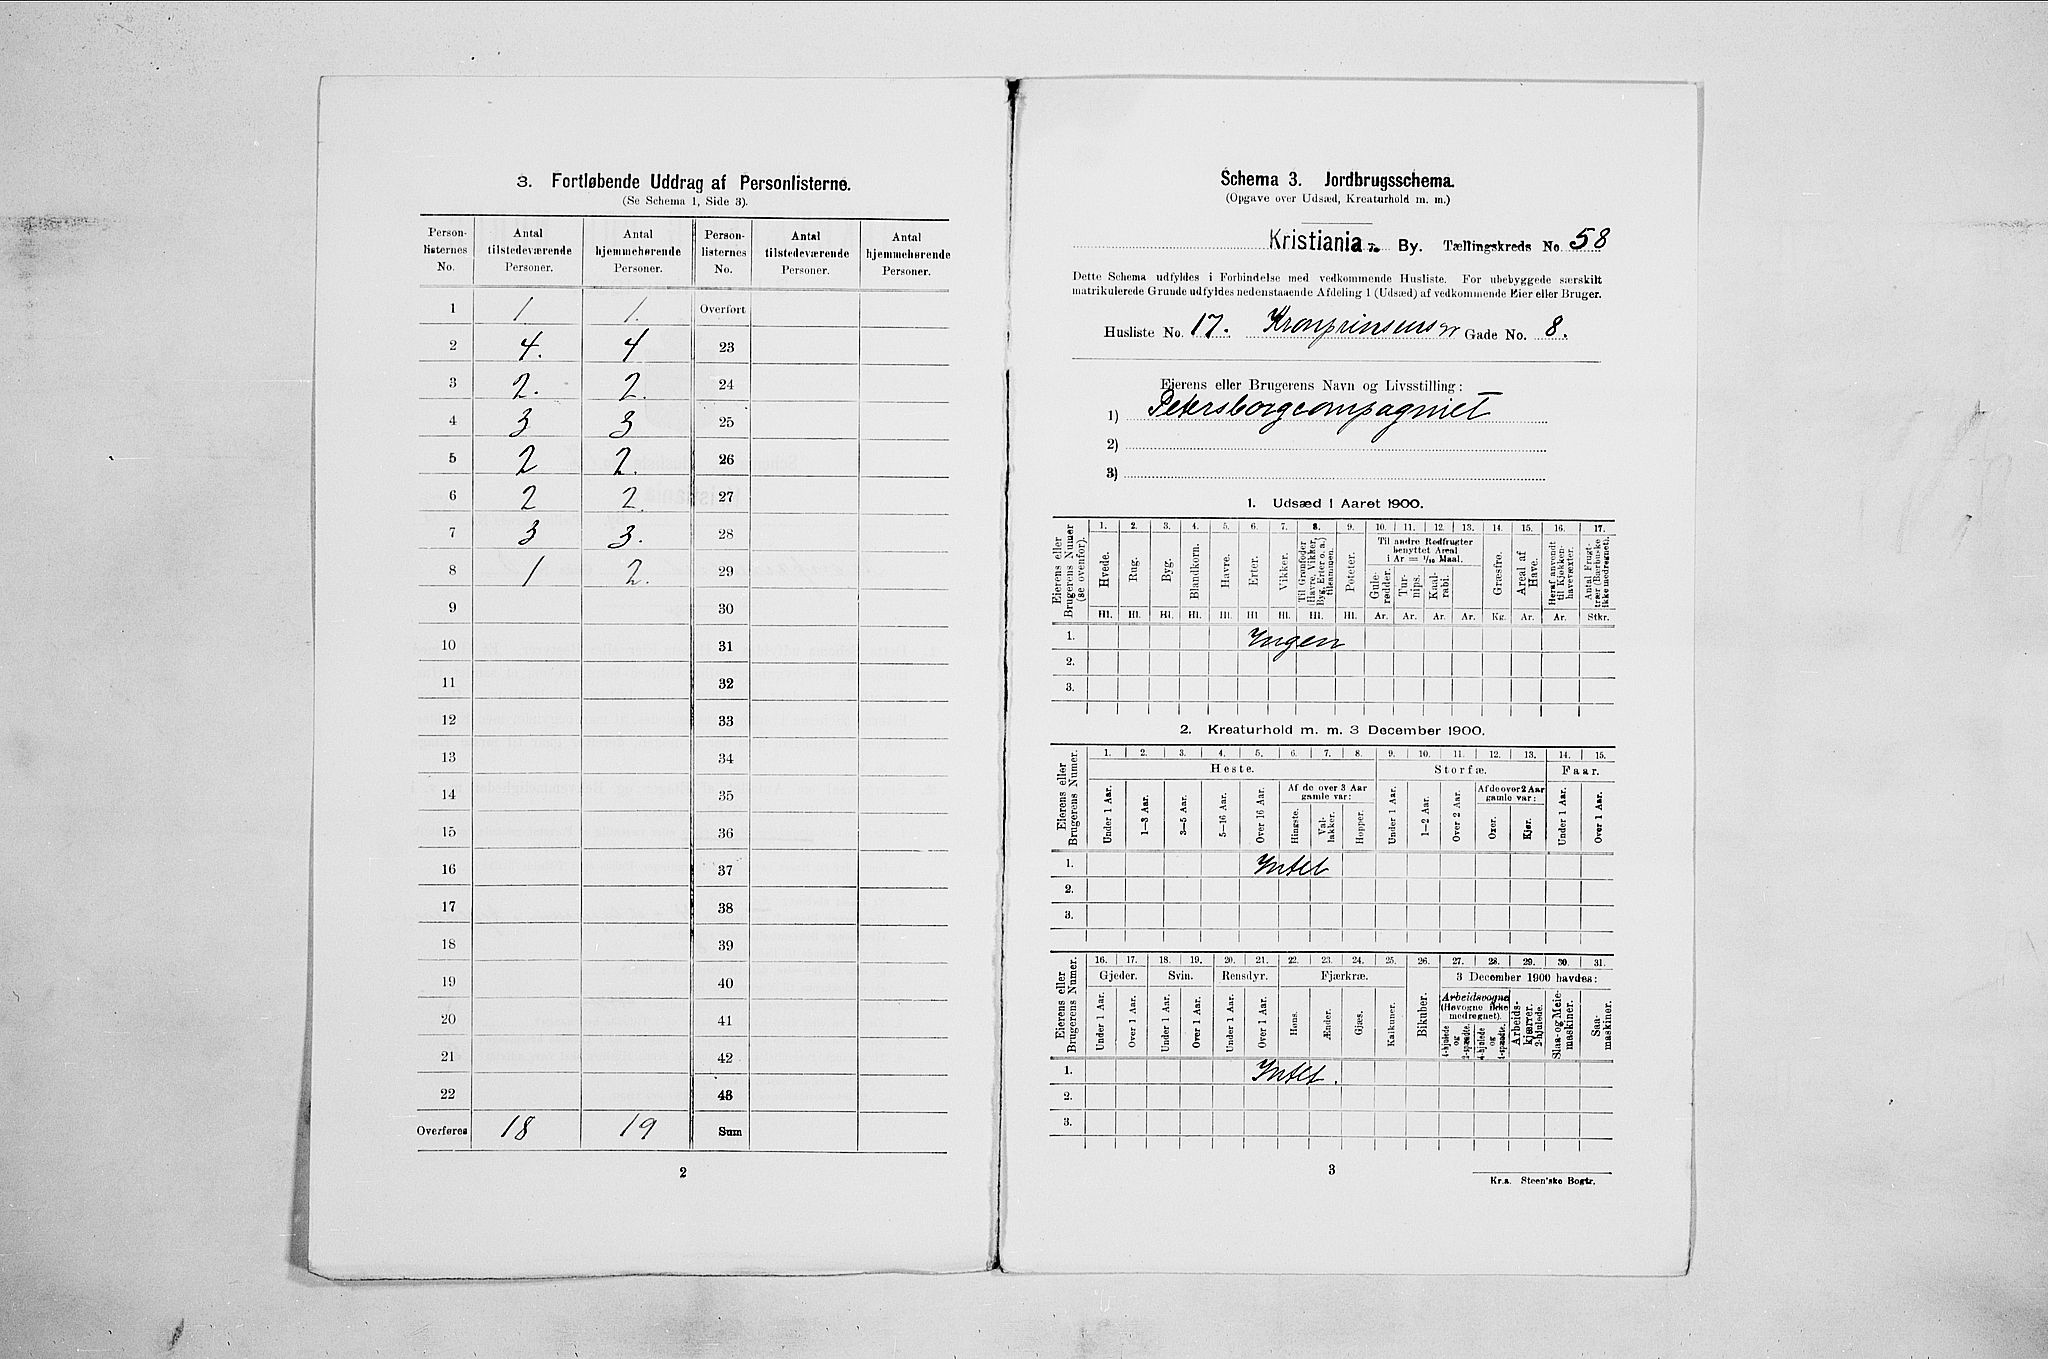 3. Fortløbende Uddrag af Personlisterne.
(Se Schema 1, Side 3).
Person-listernes No. | Antal tilstedeværende Personer. | Antal hjemmehørende Personer. | Person-listernes No. | Antal tilstedeværende Personer. | Antal hjemmehørende Personer.
1 | 1 | 1. | Overført
2 | 4. | 4 | 23
3 | 2. | 2. | 24
4 | 3 | 3 | 25
5 | 2 | 2. | 26
6 | 2 | 2. | 27
7 | 3 | 3. | 28
8 | 1 | 2. | 29
9 | 30
10 | 31
11 | 32
12 | 33
13 | 34
14 | 35
15 | 36
16 | 37
17 | 38
18 | 39
19 | 40
20 | 41
21 | 42
22 | 43
Overføres | 18 | 19 | Sum
2
Schema 3. Jordbrugsschema.
(Opgave over Udsæd, Kreaturhold m. m.)
Kristiania By. Tællingskreds No. 58
Dette Schema udfyldes i Forbindelse med vedkommende Husliste. For ubebyggede særskilt
matrikulerede Grunde udfyldes nedenstaaende Afdeling 1 (Udsæd) af vedkommende Eier eller Bruger.
Husliste No. 17. Kronprinsens Gade No. 8.
Eierens eller Brugerens Navn og Livsstilling:
1) Petersborgcompagniet
2)
3)
1. Udsæd i Aaret 1900.
Eierens eller Brugerens Numer (se ovenfor).
1. 2. 3. 4. 5. 6. 7. 8. 9. 10. 11. 12. 13. 14. 15. 16. 17.
Hvede. Rug. Byg. Blandkorn. Havre. Erter. Vikker. Til Grønfoder (Havre, Vikker, Byg, Erter o. a.) tilsammen. Poteter.
Til andre Rodfrugter benyttet Areal i Ar = 1/10 Maal.
Gulerødder. Turnips. Kaalrabi. Græsfrø. Areal af Have. Heraf anvendt til Kjøkkenhavevæxter. Antal Frugttrær (Bærbuske ikke medregnet).
Hl. Hl. Hl. Hl. Hl. Hl Hl. Hl. Hl. Ar. Ar. Ar. Ar. Kg. Ar. Ar. Stkr.
1. Ingen
2.
3.
2. Kreaturhold m. m. 3 December 1900.
Eierens eller Brugerens Numer.
1. 2. 3. 4. 5. 6. 7. 8. 9. 10. 11. 12. 13. 14. 15.
Heste. Storfæ. Faar.
Af de over 3 Aar gamle var: Af de over 2 Aar gamle var:
Under 1 Aar. 1—3 Aar. 3—5 Aar. 5—16 Aar. Over 16 Aar. Hingste. Vallakker. Hopper. Under 1 Aar. 1—2 Aar. Over 2 Aar. Oxer. Kjør. Under 1 Aar. Over 1 Aar.
1. Intet
2.
3.
Eierens eller Brugerens Numer.
16. 17. 18. 19. 20. 21. 22. 23. 24. 25. 26. 27. 28. 29. 30. 31.
Gjeder. Svin. Rensdyr. Fjærkræ. 3 December 1900 havdes:
Under 1 Aar. Over 1 Aar. Under 1 Aar. Over 1 Aar. Under 1 Aar. Over 1 Aar. Høns. Ænder. Gjæs. Kalkuner. Bikuber.
Arbeidsvogne (Høvogne ikke medregnet).
4-hjulede og 2-spændte. 4-hjulede og 1-spændte. Arbeidskjærrer, 2-hjulede. Slaa- og Meiemaskiner. Saamaskiner.
1. Intet.
2.
3.
3
Kr.a. Steen'ske Bogtr.